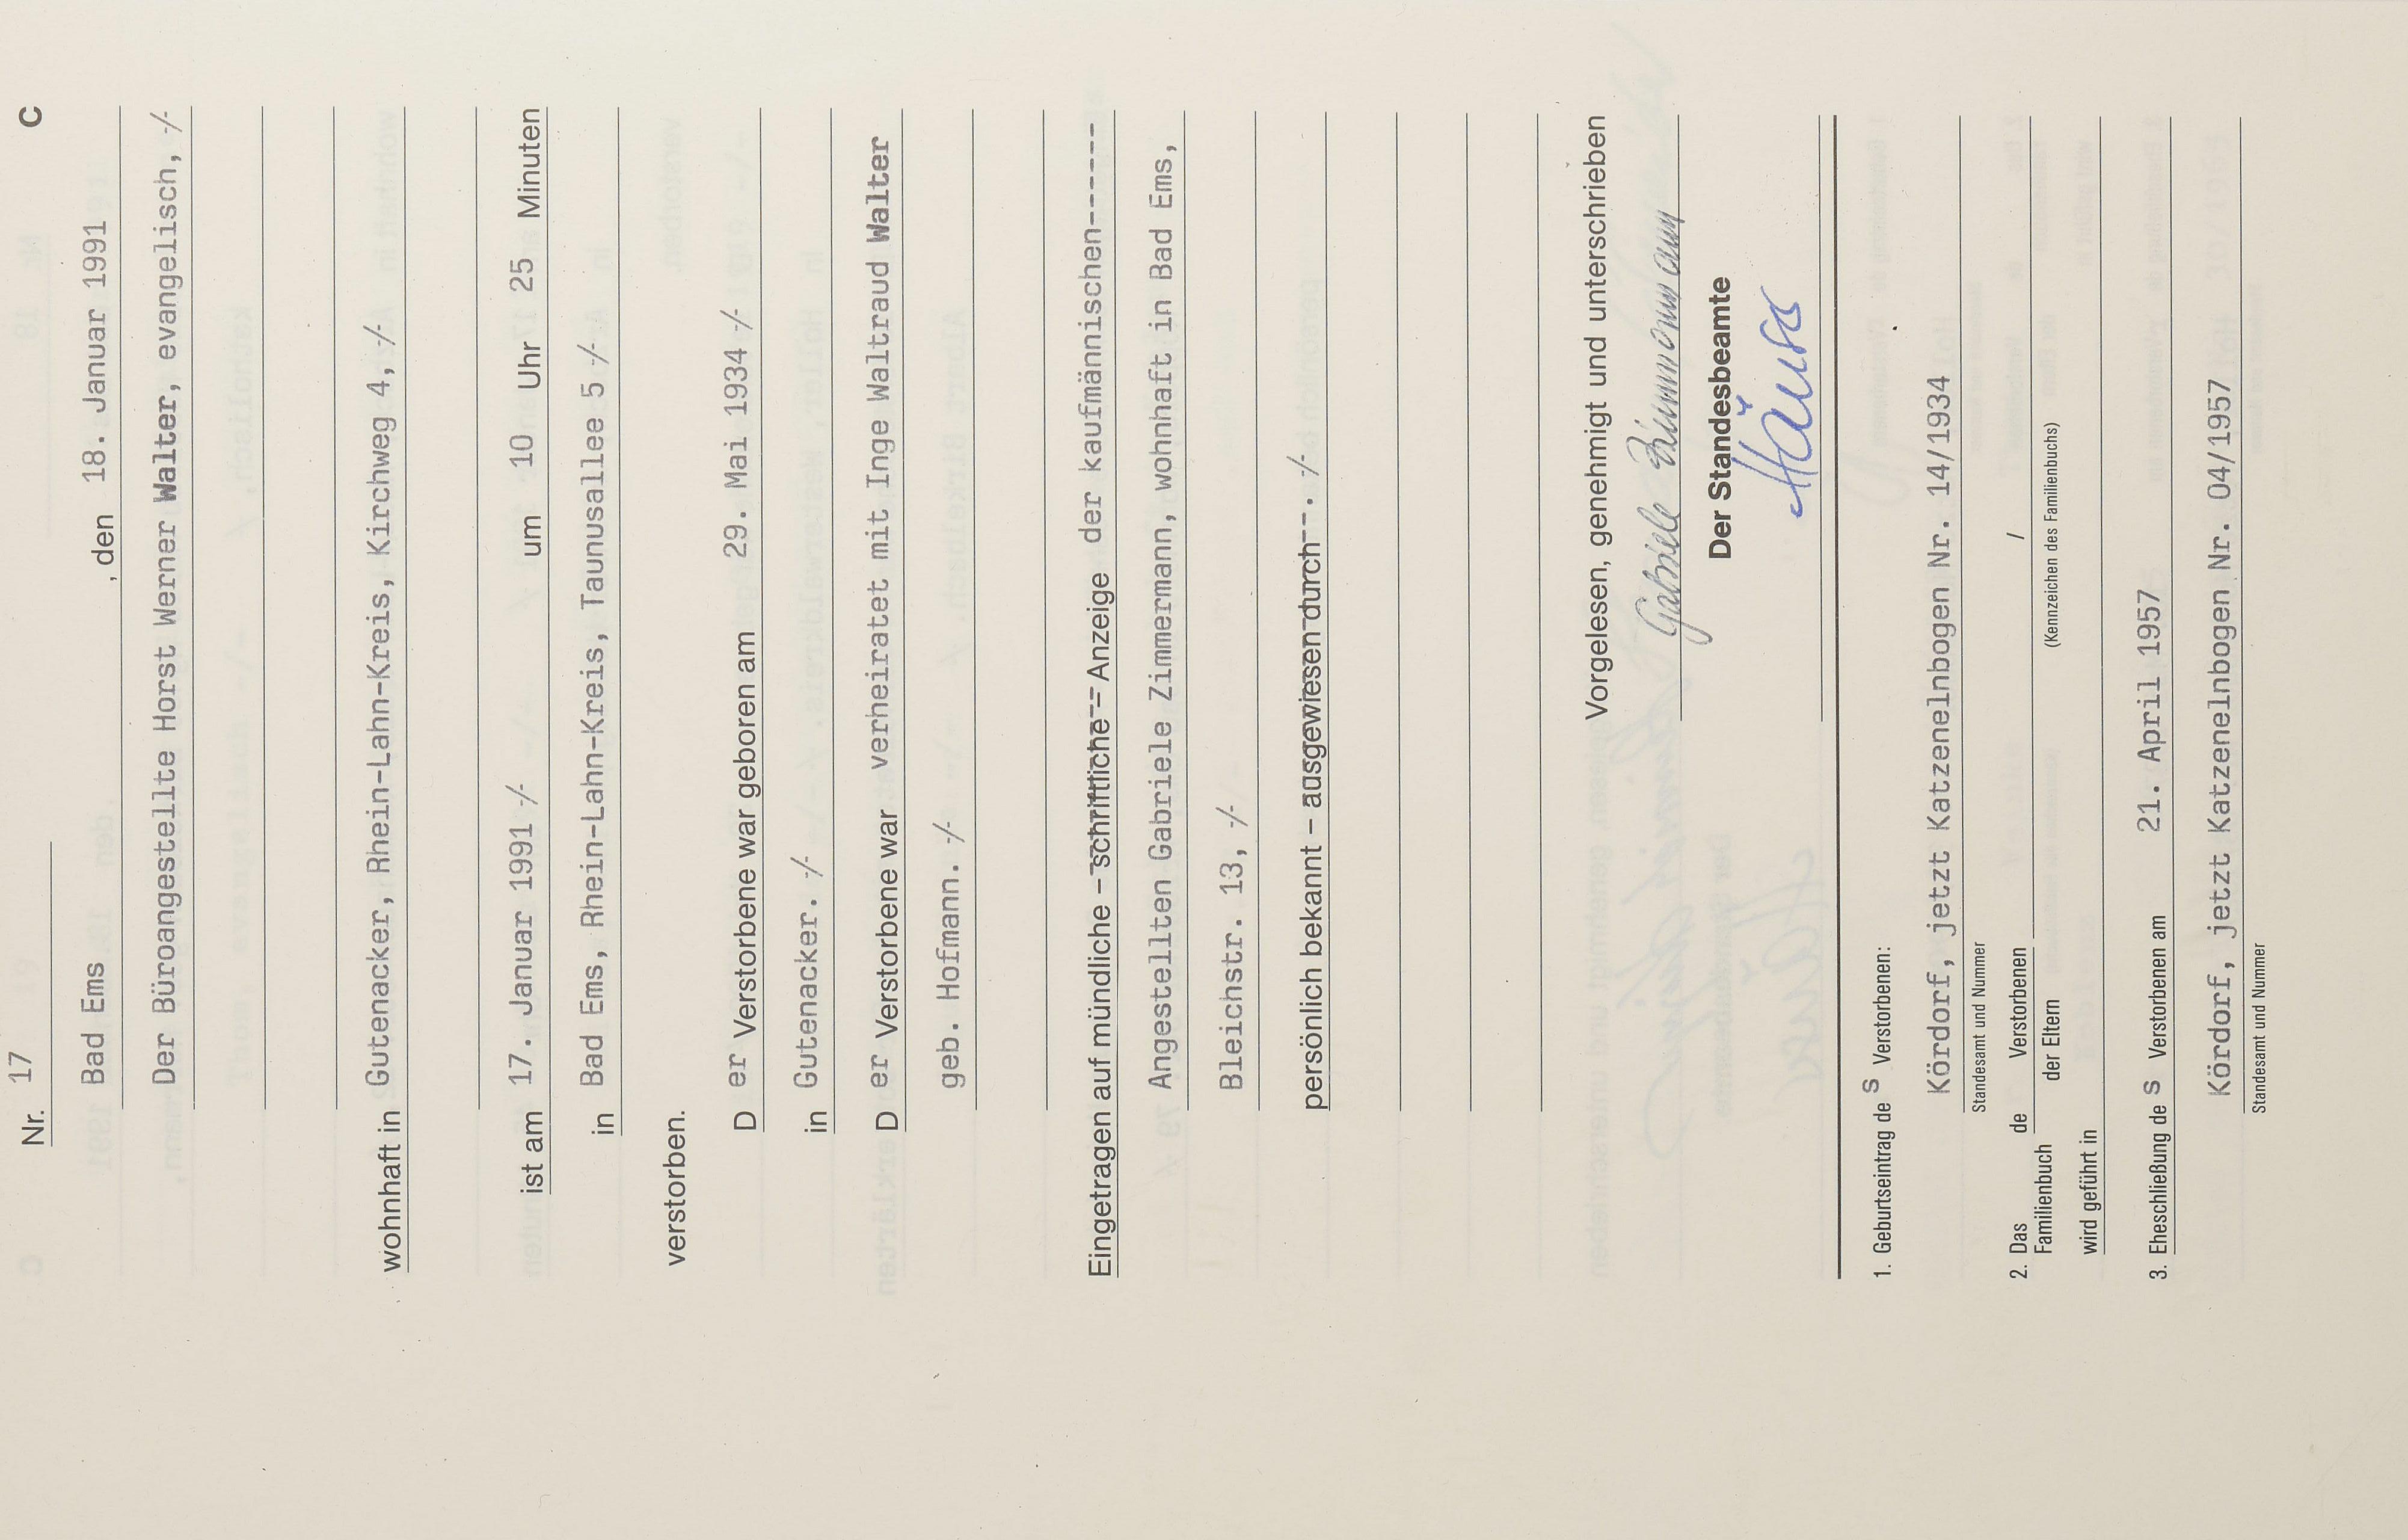 Nr. 17 C
Bad Ems , den 18. Januar 1991
Der Büroangestellte Horst Werner Walter, evangelisch, -/-
wohnhaft in Gutenacker, Rhein-Lahn-Kreis, Kirchweg 4, -/-
ist am 17. Januar 1991 -/- um 10 Uhr 25 Minuten
in Bad Ems, Rhein-Lahn-Kreis, Taunusallee 5 -/-
verstorben.
D er Verstorbene war geboren am 29. Mai 1934 -/-
in Gutenacker. -/-
D er Verstorbene war verheiratet mit Inge Waltraud Walter
geb. Hofmann. -/-
Eingetragen auf mündliche – schriftliche – Anzeige der kaufmännischen------
Angestellten Gabriele Zimmermann, wohnhaft in Bad Ems,
Bleichstr. 13, -/-
persönlich bekannt – ausgewiesen durch--. -/-
Vorgelesen, genehmigt und unterschrieben
Gabriele Zimmermann
Der Standesbeamte
1. Geburtseintrag de s Verstorbenen:
Kördorf, jetzt Katzenelnbogen Nr. 14/1934
Standesamt und Nummer
2. Das Familienbuch de Verstorbenen /
der Eltern (Kennzeichen des Familienbuchs)
wird geführt in
3. Eheschließung de s Verstorbenen am 21. April 1957
Kördorf, jetzt Katzenelnbogen Nr. 04/1957
Standesamt und Nummer